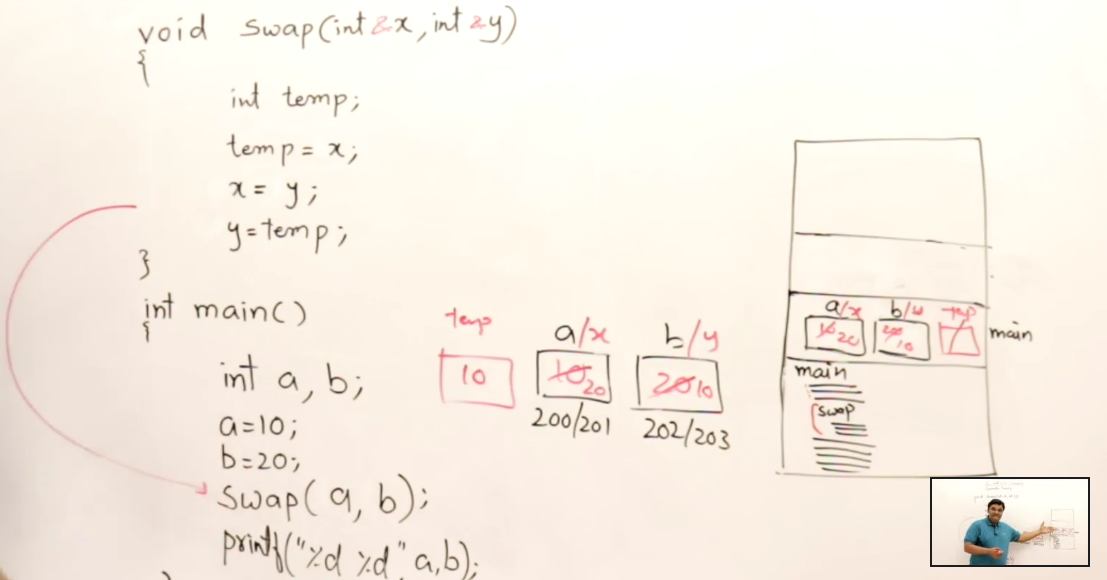 void swap(int &x, int &y)
{
int temp;
temp = x;
x = y;
y = temp;
}
int main()
{
int a, b;
a=10;
b=20;
swap(a, b);
printf("%d %d", a,b);
}
temp a/x b/y
10 10 20 20 10
200/201 202/203
a/x b/y tmp
10 20 20 10
main
main
swap